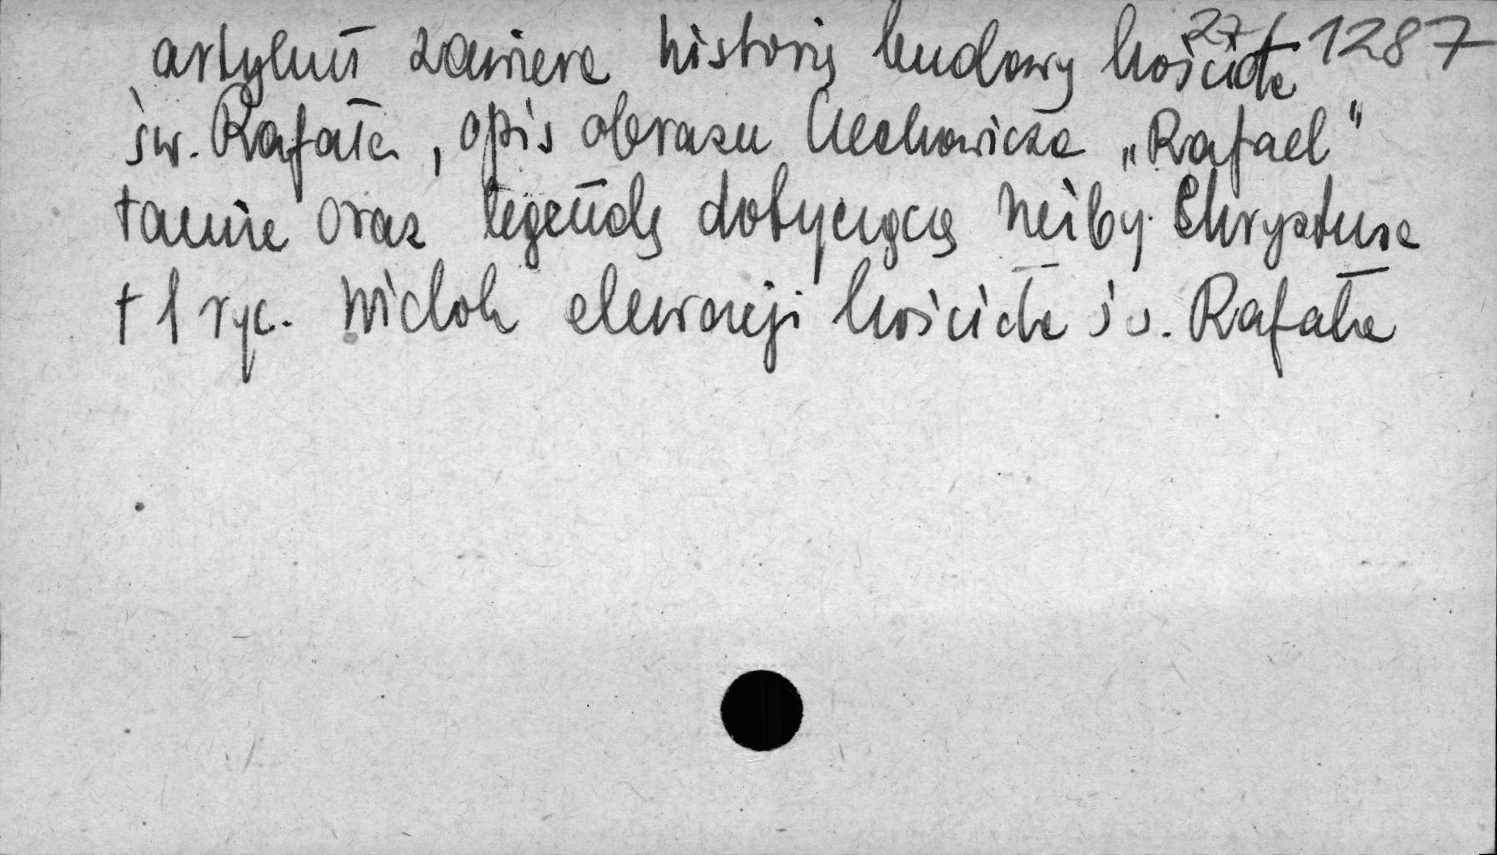 27/1287
artykuł zawiera historię budowy kościoła
św. Rafała, opis obrazu Czechowicza „Rafael"
tamże oraz legendę dotyczącą rzeźby Chrystusa
+ 1 ryc. widok elewacji kościoła św. Rafała